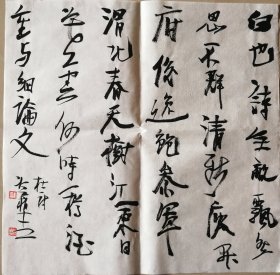 白也詩無敵飄然
思不群清新庾開
府俊逸鮑參軍
渭北春天樹江東日
暮雲何時一樽酒
重与細論文
杜詩